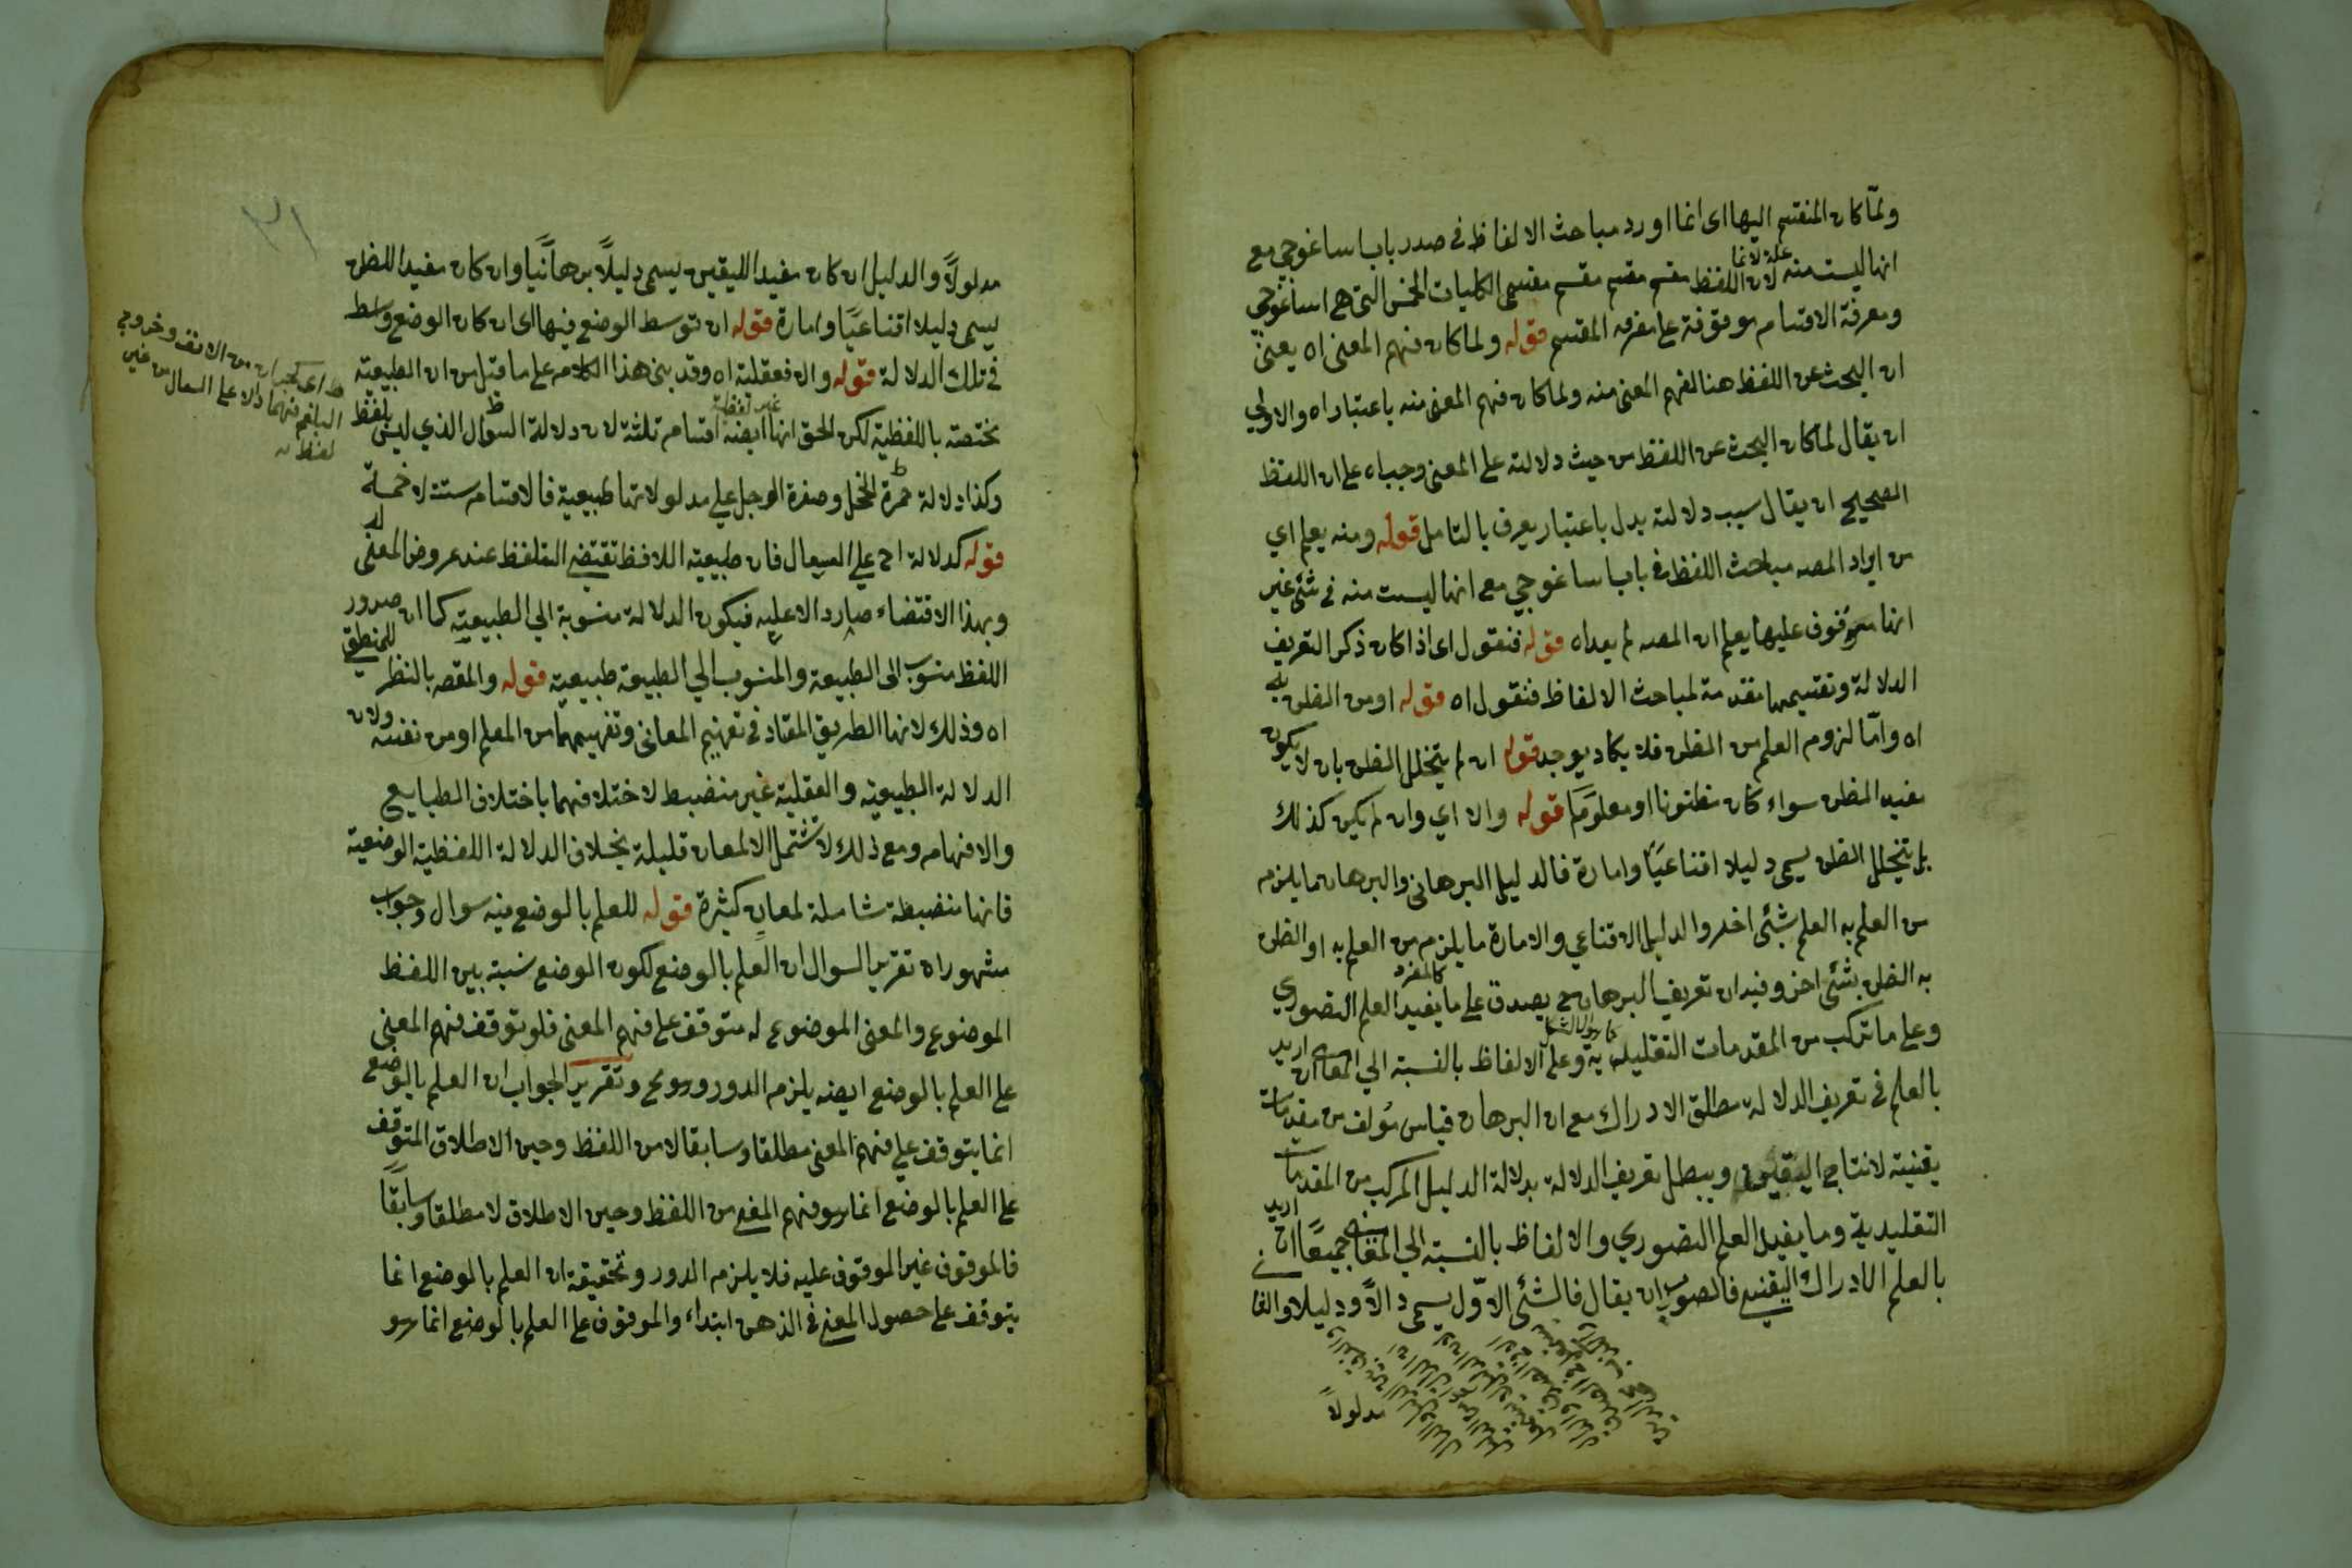 ولما كان المنقسم اليها اى انما اورد مباحث الالفاظ فى صدر باب ايساغوجى مع
علة لانما
انها ليست منه لان اللفظ مقسم مقسم مقسم مقسمى الكليات الخمس التى هى ايساغوجى
ومعرفة الاقسام موقوفة على معرفة المقسم قوله ولما كان فهم المعنى اه يعنى
ان البحث عن اللفظ هنا لفهم المعنى منه ولما كان فهم المعنى منه باعتبار اه والاولى
ان يقال لما كان البحث عن اللفظ من حيث دلالته على المعنى وجب اه على ان اللفظ
الصحيح ان يقال سبب دلالته بدل باعتبار يعرف بالتامل قوله ومنه يعلم اي
من ايراد المصه مباحث اللفظ فى باب ايساغوجي مع انها ليست منه فى شئ غير
انها موقوف عليها يعلم ان المصه لم يعد اه قوله فنقول اى اذا كان ذكر التعريف
الدلالة وتقسيمها مقدمة لمباحث الالفاظ فنقول اه قوله او من الظن به
اه واما لزوم العلم من الظن فلا يكاد يوجد قوله ان لم يتخلل الظن بان لا يكون
مفيد الظن سواء كان مظنونا او معلوما قوله والا اي وان لم يكن كذلك
بل يتخلل الظن يسمى دليلا اقناعيا وامارة فالدليل البرهانى والبرهان ما يلزم
من العلم به العلم بشئ اخر والدليل الاقناعي والامارة ما يلزم من العلم به او الظن
به الظن بشئ اخر وفيه ان تعريف البرهان ح يصدق على ما يفيد العلم التصوري
كالمعرف
وعلى ما تركب من المقدمات التقليدية وعلى الالفاظ بالنسبة الى المعانى ان اريد
بالعلم فى تعريف الدلالة مطلق الادراك مع ان البرهان قياس مؤلف من مقدمات
يقينية لانتاج اليقين ويبطل تعريف الدلالة بدلالة الدليل المركب من المقدمات
التقليدية وما يفيد العلم التصوري والالفاظ بالنسبة الى المعانى جميعا ان اريد
بالعلم الادراك اليقينى فالصواب ان يقال فالشئ الاول يسمى دالا ودليلا والثانى
مدلولا
٣١
مدلولا والدليل ان كان مفيدا لليقين يسمى دليلا برهانيا وان كان مفيدا للظن
يسمى دليلا اقناعيا وامارة قوله ان توسط الوضع فيها اى ان كان الوضع واسط
فى تلك الدلالة قوله والا فعقلية اه وقد بنى هذا الكلام على ما قيل من ان الطبيعية
مختصة باللفظية لكن الحق انها ايضه اقسام ثلثة لان دلالة السوال الذي ليس بلفظ
غير لفظية
وكذا دلالة حمرة الخجل وصفرة الوجل على مدلولاتها طبيعية فالاقسام ستة لا خمسة
قوله كدلالة اح على السعال فان طبيعية اللافظ تقتضى التلفظ عند عروض المعنى
وبهذا الاقتضاء صار دالا عليه فيكون الدلالة منسوبة الى الطبيعية كما ان صدور
اللفظ منسوب الى الطبيعة والمنسوب الي الطبيعة طبيعية قوله والمقصه بالنظر للمنطقى
اه وذلك لانها الطريق المعتاد فى تفهيم المعانى وتفهيمها من المعلم او من نفسه ولان
الدلالة الطبيعية والعقلية غير منضبط لاختلافهما باختلاف الطبايع
والافهام ومع ذلك لا تشتمل الا لمعان قليلة بخلاف الدلالة اللفظية الوضعية
فانها منضبطة شاملة لمعان كثيرة قوله للعلم بالوضع فيه سوال وجواب
مشهور اه تقرير السوال ان العلم بالوضع لكون الوضع نسبة بين اللفظ
الموضوع والمعنى الموضوع له متوقف على فهم المعنى فلو توقف فهم المعنى
على العلم بالوضع ايضه يلزم الدور وهو مح وتقرير الجواب ان العلم بالوضع
انما يتوقف على فهم المعنى مطلقا وسابقا لا من اللفظ وحين الاطلاق المتوقف
على العلم بالوضع انما هو فهم المعنى من اللفظ وحين الاطلاق لا مطلقا وسابقا
فالموقوف غير الموقوف عليه فلا يلزم الدور وتحقيقه ان العلم بالوضع انما
يتوقف على حصول المعنى فى الذهن ابتداء والموقوف على العلم بالوضع انما هو
من الانف وخروج
البلغم فانهما دالا على السعال من غير
لفظ